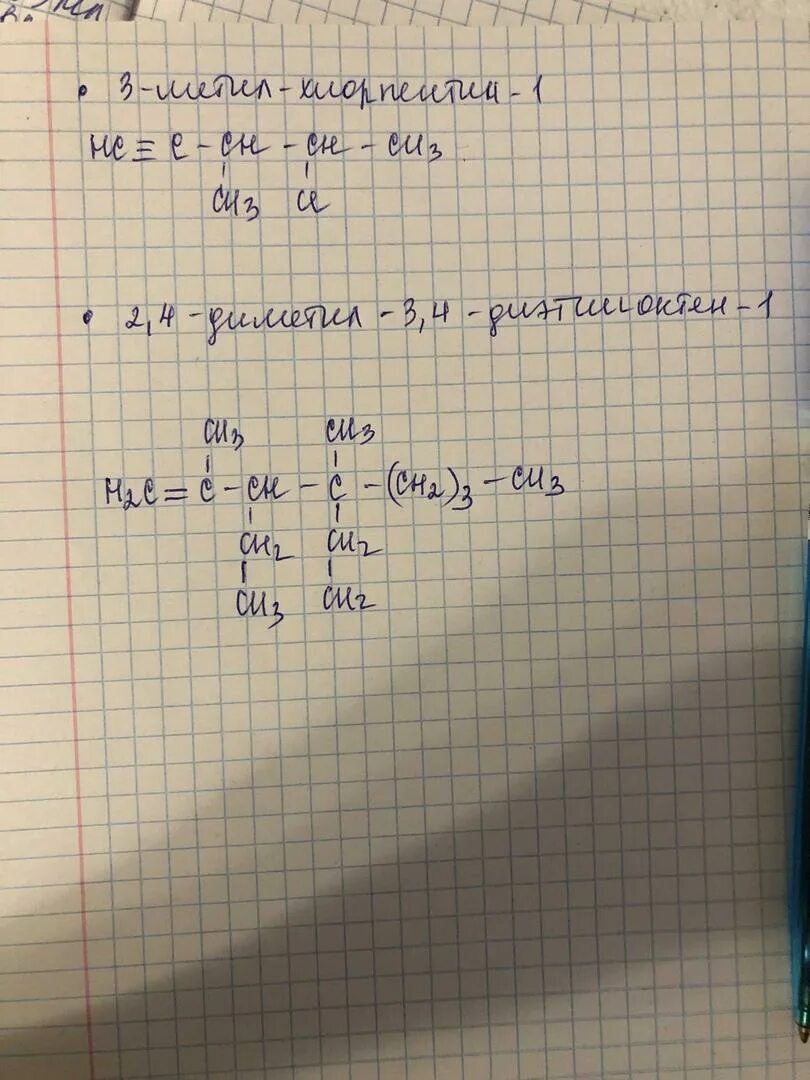 • 3-метил-хлорпентин-1
HC≡C-CH-CH-CH3
CH3 Cl
• 2,4-диметил-3,4-диэтилоктен-1
CH3 CH3
H2C=C-CH-C-(CH2)3-CH3
CH2 CH2
CH3 CH2